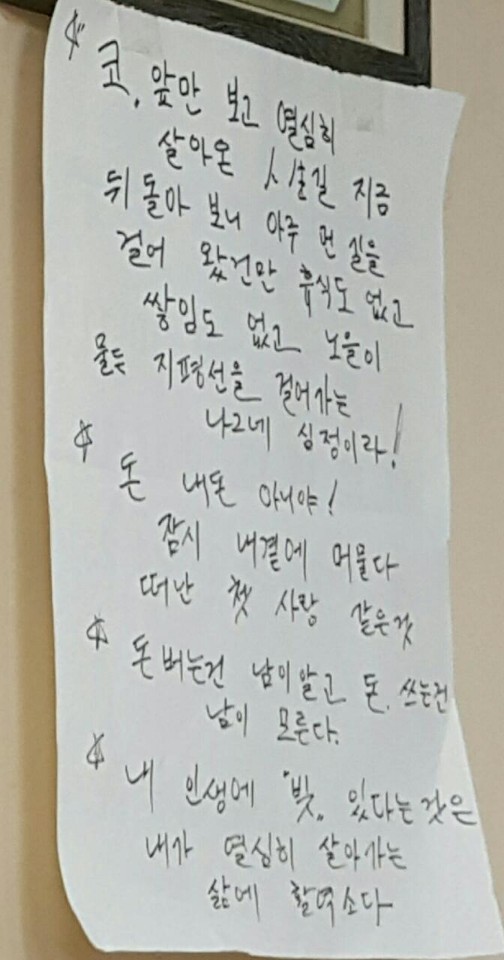 코, 앞만 보고 열심히
살아온 人生길 지금
뒤 돌아 보니 아주 먼 길을
걸어 왔건만 휴식도 없고
쌓임도 없고 노을이
물든 지평선을 걸어가는
나그네 심정이라!
돈 내돈 아니야!
잠시 내곁에 머물다
떠난 첫 사랑 같은것
돈 버는건 남이알고 돈, 쓰는건
남이 모른다.
내 인생에 "빚" 있다는 것은
내가 열심히 살아가는
삶에 활역소다